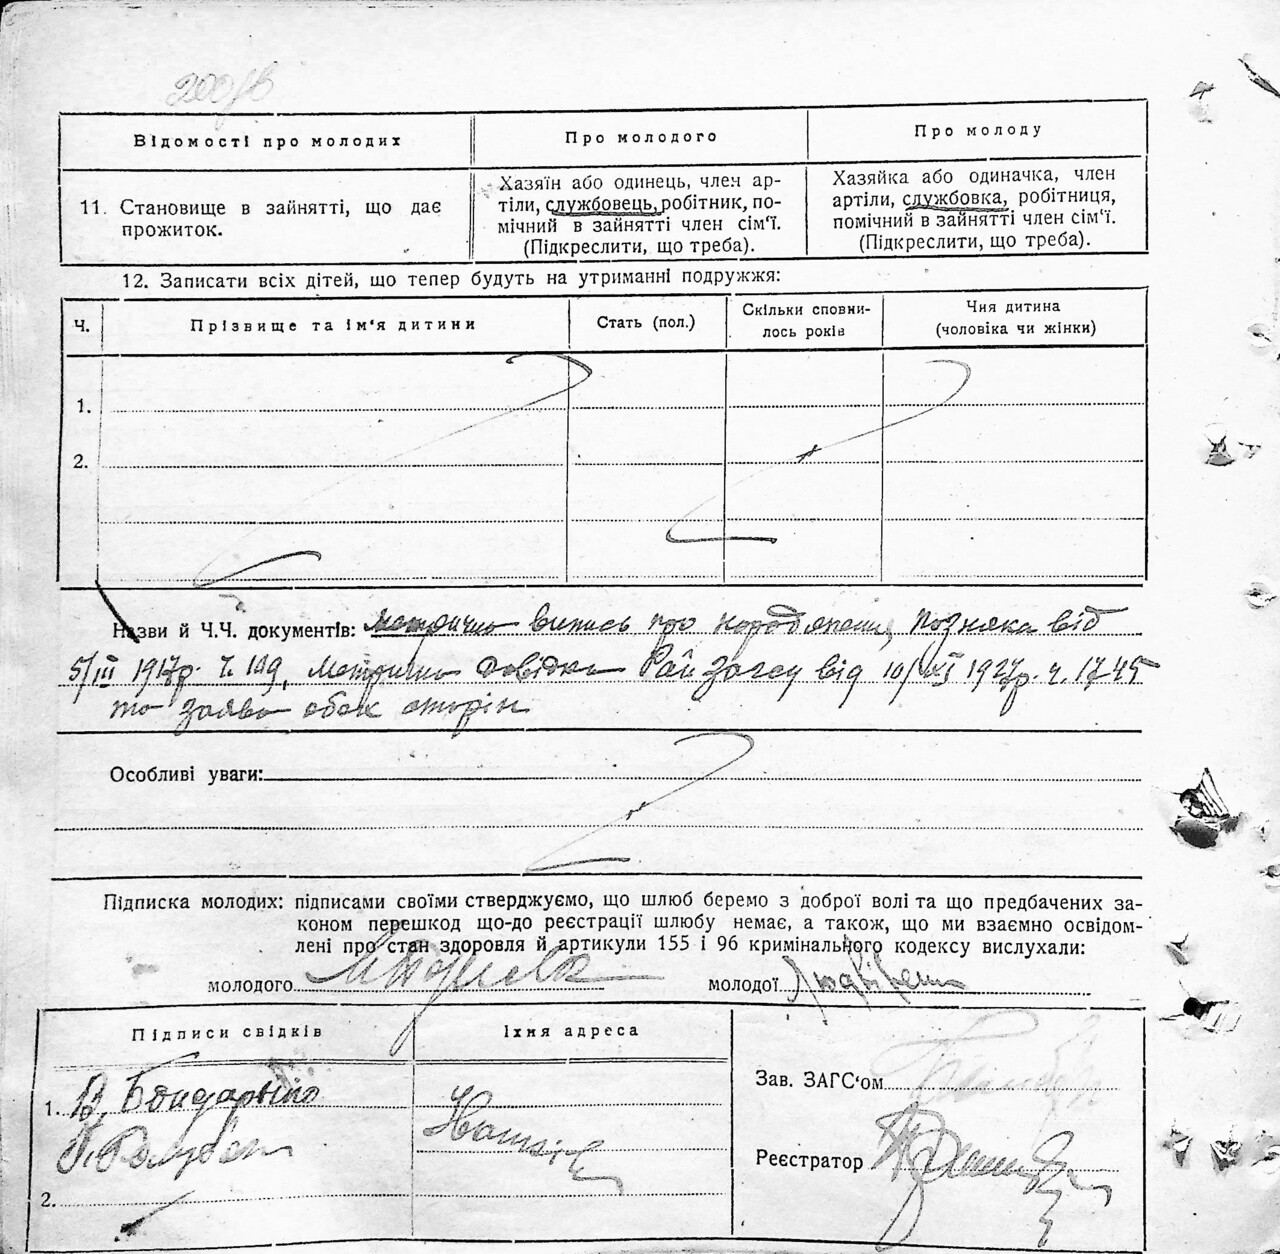 200 зв
Відомості про молодих
Про молодого
Про молоду
11. Становище в зайнятті, що дає
прожиток.
Хазяїн або одинець, член ар-
тіли, службовець, робітник, по-
мічний в зайнятті член сім‘ї.
(Підкреслити, що треба).
Хазяйка або одиначка, член
артіли, службовка, робітниця,
помічний в зайнятті член сім‘ї.
(Підкреслити, що треба).
12. Записати всіх дітей, що тепер будуть на утриманні подружжя:
Ч.
Прізвище та ім‘я дитини
Стать (пол.)
Скільки сповни-
лось років
Чия дитина
(чоловіка чи жінки)
1.
2.
Назви й Ч.Ч. документів: Метрична випись про народження Позняка від
5/III 1917р. Ч. 119, Метрична довідка Рай Загсу від 10/XI 1927р. ч. 1745
та заява обох сторін
Особливі уваги:
Підписка молодих: підписами своїми стверджуємо, що шлюб беремо з доброї волі та що предбачених за-
коном перешкод що-до реєстрації шлюбу немає, а також, що ми взаємно освідом-
лені про стан здоровля й артикули 155 і 96 кримінального кодексу вислухали:
молодого
молодої
Підписи свідків
Їхня адреса
1. В. Бондаренко
2.
Зав. ЗАГС‘ом
Реєстратор